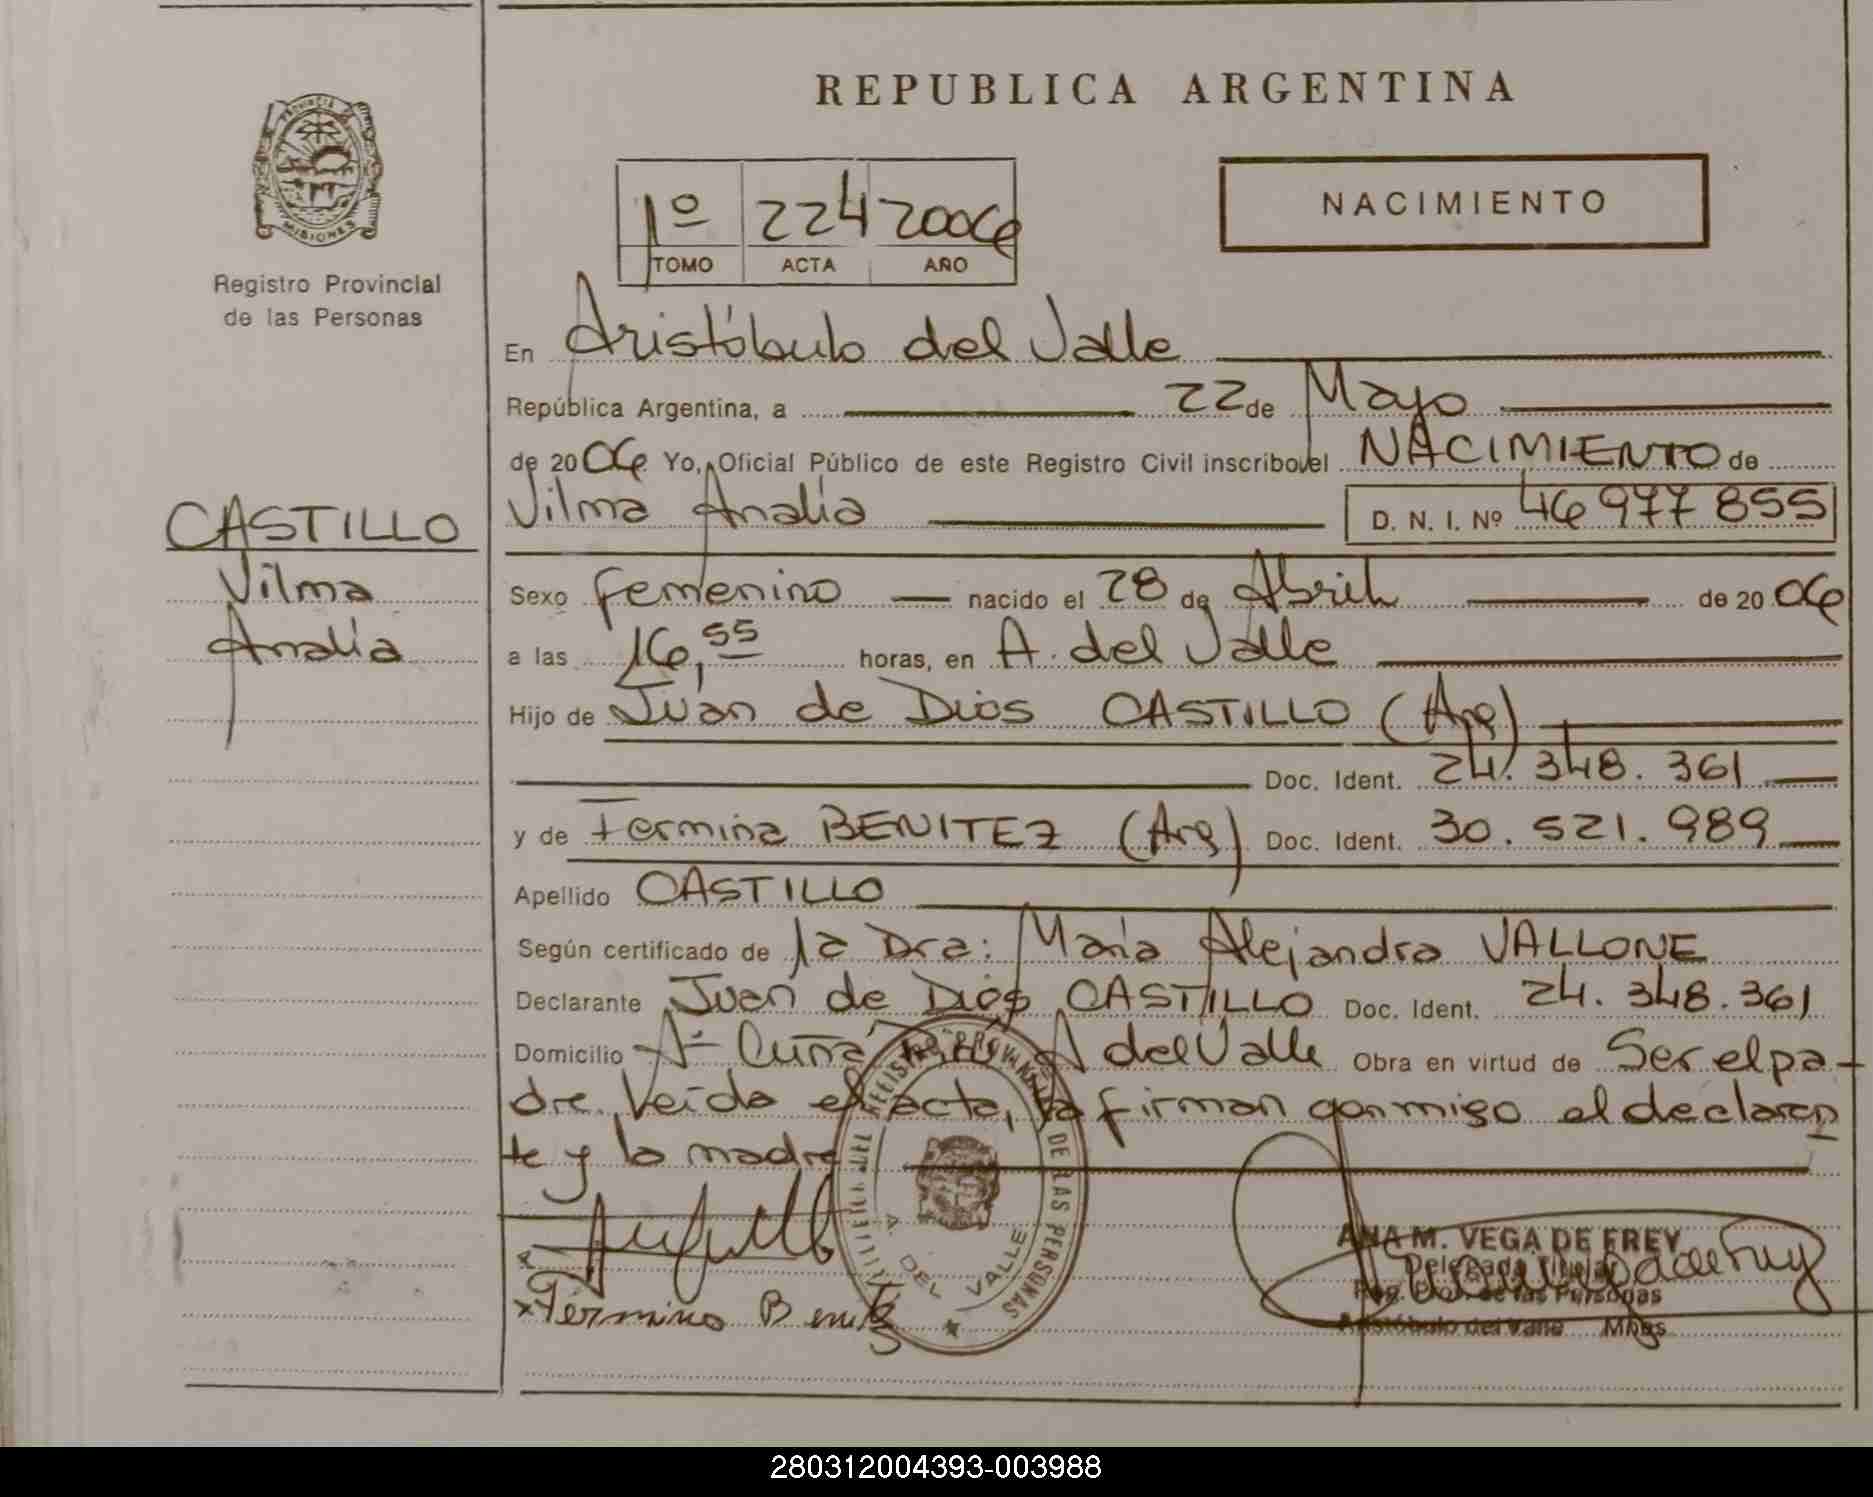 REPUBLICA ARGENTINA
PROVINCIA DE
MISIONES
Registro Provincial
de las Personas
1º 224 2006
TOMO ACTA AÑO
NACIMIENTO
En Aristóbulo del Valle
República Argentina, a 22 de Mayo
de 2006 Yo, Oficial Público de este Registro Civil inscribo el NACIMIENTO de
CASTILLO
Vilma
Analía
Vilma Analía D. N. I. Nº 46 977 855
Sexo femenino nacido el 28 de Abril de 2006
a las 16,55 horas, en A. del Valle
Hijo de Juan de Dios CASTILLO (Arg)
Doc. Ident. 24.348.361
y de Fermina BENITEZ (Arg) Doc. Ident. 30.521.989
Apellido CASTILLO
Según certificado de la Dra: María Alejandra VALLONE
Declarante Juan de Dios CASTILLO Doc. Ident. 24.348.361
Domicilio Aº A del Valle Obra en virtud de Ser el pa-
dre. Leída el acta, la firman conmigo el declaran
te y la madre
DE LAS PERSONAS
A. DEL VALLE
x Fermina Benitez
ANA M. VEGA DE FREY
Delegada Titular
Reg. Prov. de las Personas
Aristóbulo del Valle Mnes
280312004393-003988